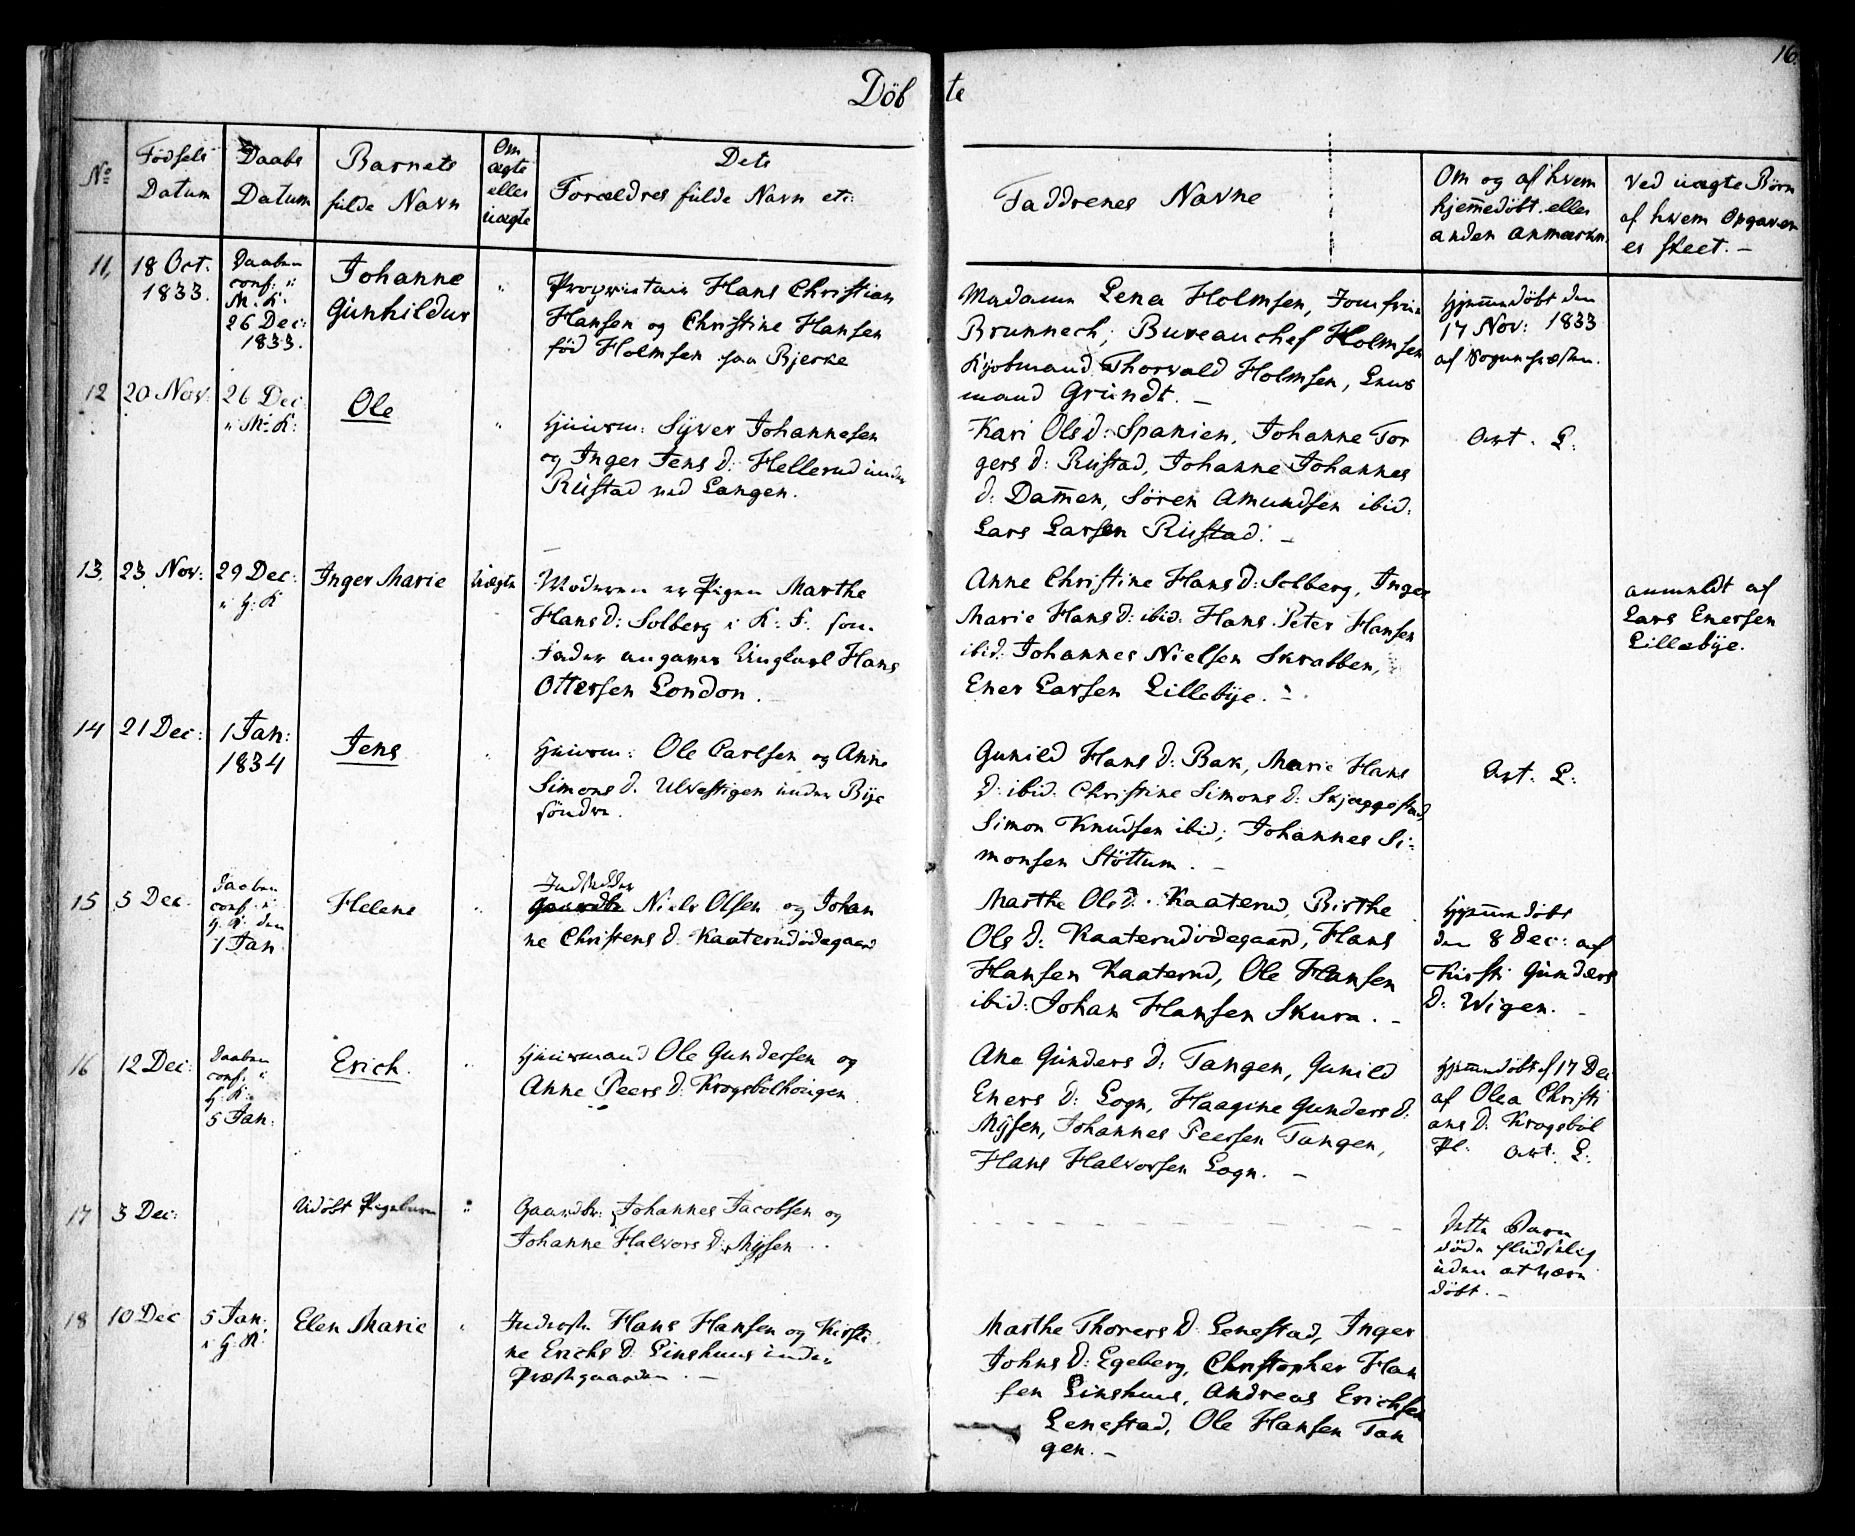 16.
Döbte
No
Födsels Datum
Daabs Datum
Barnets fulde Navn
Om ægte eller uægte
Dets Forældres fulde Navn etc:
Faddrenes Navne
Om og af hvem hjemedöbt eller anden Anmærkn.
Ved uægte Börn af hvem Opgaven er skeet. -
11, 18 Oct. 1833.
Daaben conf: i M. K. 26 Dec: 1833.
Johanne Gunhildur
"
Proprietair Hans Christian
Hansen og Christine Hansen
föd Holmsen paa Bjerke
Madame Lena Holmsen, Jomfrue
Brunnech, Bureauchef Holmsen
Kjöbmand Thorvald Holmsen, Lens
mand Gründt. -
Hjemmedöbt den
17 Nov: 1833
af Sognepræsten.
12 20 Nov.
26 Dec: i M. K:
Ole
"
Huusm: Syver Johannesen
og Inger Jens D: Hellerud under
Rustad ved Langen.
Kari Ols d: Spanien, Johanne Tor
gers d: Rustad, Johanne Johannes
d: Damen, Sören Amundsen ibid:
Lars Larsen Rustad. -
Att. L:
13. 23. Nov:
29 Dec: i H: K
Inger Marie
Uægte
Moderen er Pigen Marthe
Hans D: Solberg i K: F. som
Fader angaves Ungkarl Hans
Ottersen London.
Anne Christine Hans d: Solberg, Inger
Marie Hans d: ibid: Hans Peter Hansen
ibid: Johannes Nielsen Skrabben,
Ener Larsen Lillebye. -
anmeldt af
Lars Enersen
Lillebye.
14 21 Dec:
1 Jan: 1834
Jens
"
Huusm: Ole Carlsen og Anne
Simons d. Ulvestigen under Bye
söndre.
Gunild Hans d: Bak, Marie Hans
d: ibid. Christine Simons d: Skjæggestad,
Simon Knudsen ibid; Johannes Si=
monsen Stöttum. -
Att. L:
15 5 Dec.
Daaben conf: i H. K. den 1 Jan
Helene
"
Niels Olsen og Johan
ne Christens d. Kaaterudödegaard
Marthe Ols d. Kaaterud, Birthe
Ols d: Kaaterudödegaard, Hans
Hansen Kaaterud, Ole Hansen
ibid: Johan Hansen Skura. -
Hjemmedöbt
den 8 Dec: af
Kirsti Gunders
D: Wigen. -
16 12 Dec:
Daaben conf: i H. K: 5 Jan:
Erich.
"
Huusmand Ole Gundersen og
Anne Peers d: Krogsbölhougen.
Ane Gunders d: Tangen, Gunild
Eners d: Logn, Haagine Gunders d:
Mysen, Johannes Peersen Tangen,
Hans Halvorsen Logn. -
Hjemmedöbt 17 Dec
af Olea Christi
ans d. Krogsböl
Pl. Att. L:
17 3 Dec:
Udöbt Pigebarn
"
Gaardbr: Johannes Jacobsen og
Johanne Halvors D: Mysen
dette Barn
döde pludselig
uden at være
döbt. -
18 10 Dec
5 Jan: i H: K:
Elen Marie
"
Inderst Hans Hansen og Kirsti
ne Erichs D: Linshuus under
Præstegaarden. -
Marthe Thorers D: Lenestad, Inger
Johns d: Egeberg, Christopher Han
sen Linshuus, Andreas Erichsen
Lenestad, Ole Hansen Tan
gen. -